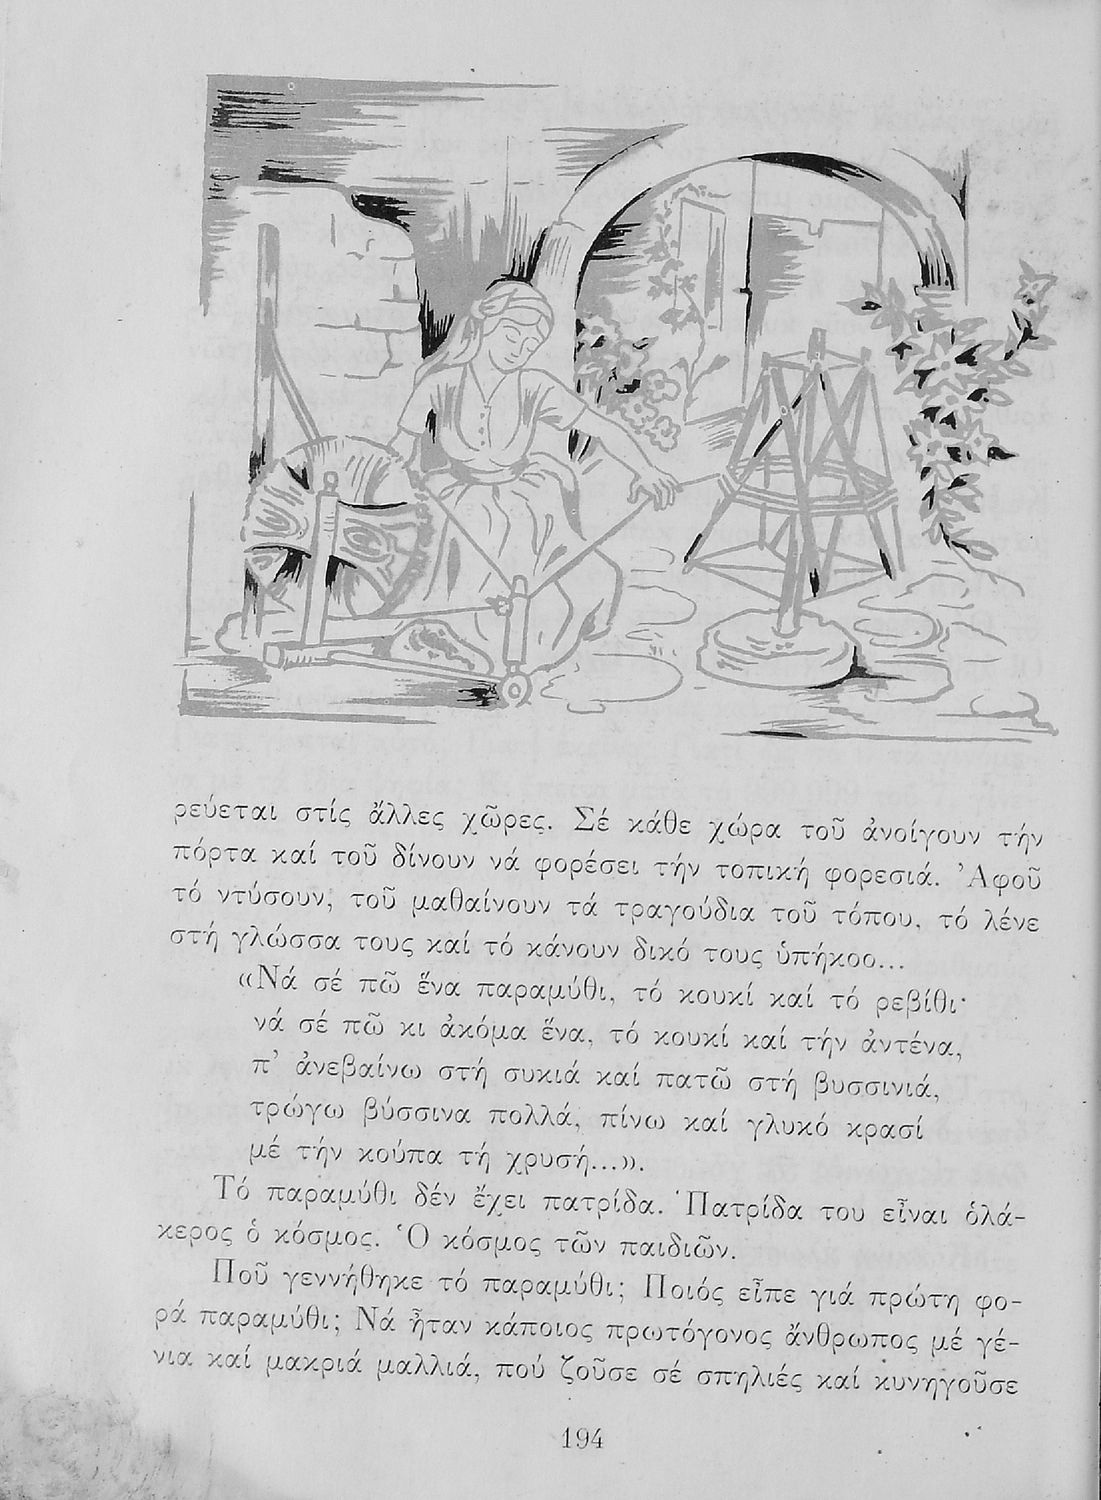 ρεύεται στίς ἄλλες χῶρες. Σέ κάθε χώρα τοῦ ἀνοίγουν τήν
πόρτα καί τοῦ δίνουν νά φορέσει τήν τοπική φορεσιά. Ἀφοῦ
τό ντύσουν, τοῦ μαθαίνουν τά τραγούδια τοῦ τόπου, τό λένε
στή γλώσσα τους καί τό κάνουν δικό τους ὑπήκοο...
«Νά σέ πῶ ἕνα παραμύθι, τό κουκί καί τό ρεβίθι·
νά σέ πῶ κι ἀκόμα ἕνα, τό κουκί καί τήν ἀντένα,
π' ἀνεβαίνω στή συκιά καί πατῶ στή βυσσινιά,
τρώγω βύσσινα πολλά, πίνω καί γλυκό κρασί
μέ τήν κούπα τή χρυσή...».
Τό παραμύθι δέν ἔχει πατρίδα. Πατρίδα του εἶναι ὁλά-
κερος ὁ κόσμος. Ὁ κόσμος τῶν παιδιῶν.
Ποῦ γεννήθηκε τό παραμύθι; Ποιός εἶπε γιά πρώτη φο-
ρά παραμύθι; Νά ἦταν κάποιος πρωτόγονος ἄνθρωπος μέ γέ-
νια καί μακριά μαλλιά, πού ζοῦσε σέ σπηλιές καί κυνηγοῦσε
194